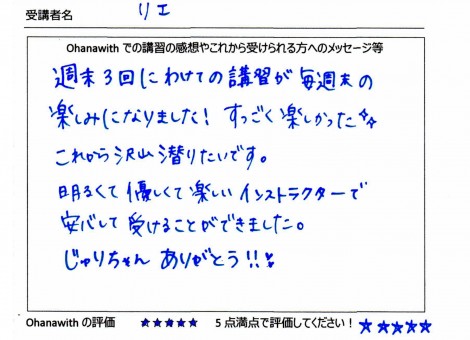 受講者名 リエ
Ohanawith での講習の感想やこれから受けられる方へのメッセージ等
週末3回にわけての講習が毎週末の
楽しみになりました! すっごく楽しかった☆☆
これから沢山潜りたいです。
明るくて優しくて楽しいインストラクターで
安心して受けることができました。
じゅりちゃん ありがとう!!♥
Ohanawith の評価 ★★★★★ 5点満点で評価してください! ★★★★★